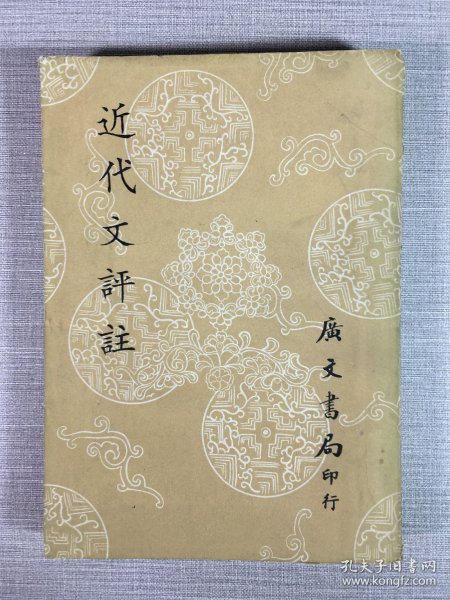 近代文評註
廣文書局印行
孔夫子旧书网
www.kongfz.com